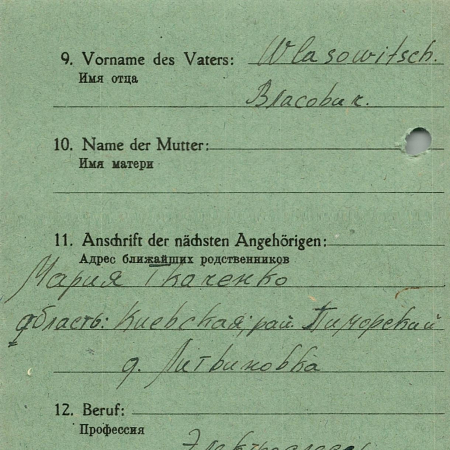 9. Vorname des Vaters: Wlasowitsch.
Имя отца
Власовик.
10. Name der Mutter:
Имя матери
11. Anschrift der nächsten Angehörigen:
Адрес ближайших родственников
Мария Ткаченко
область: Киевская; рай.
д. Литвиновка
12. Beruf:
Профессия